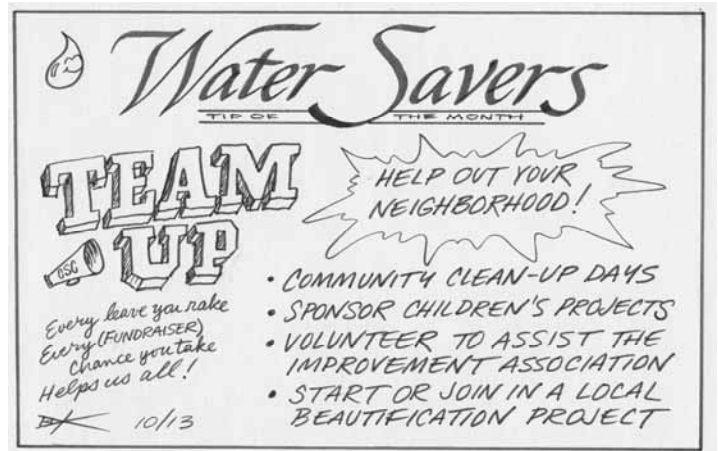 Water Savers
TIP OF THE MONTH
TEAM
UP
OSC
Every leave you rake
Every (FUNDRAISER)
Chance you take
Helps us all!
10/13
HELP OUT YOUR
NEIGHBORHOOD!
• COMMUNITY CLEAN-UP DAYS
• SPONSOR CHILDREN'S PROJECTS
• VOLUNTEER TO ASSIST THE
IMPROVEMENT ASSOCIATION
• START OR JOIN IN A LOCAL
BEAUTIFICATION PROJECT